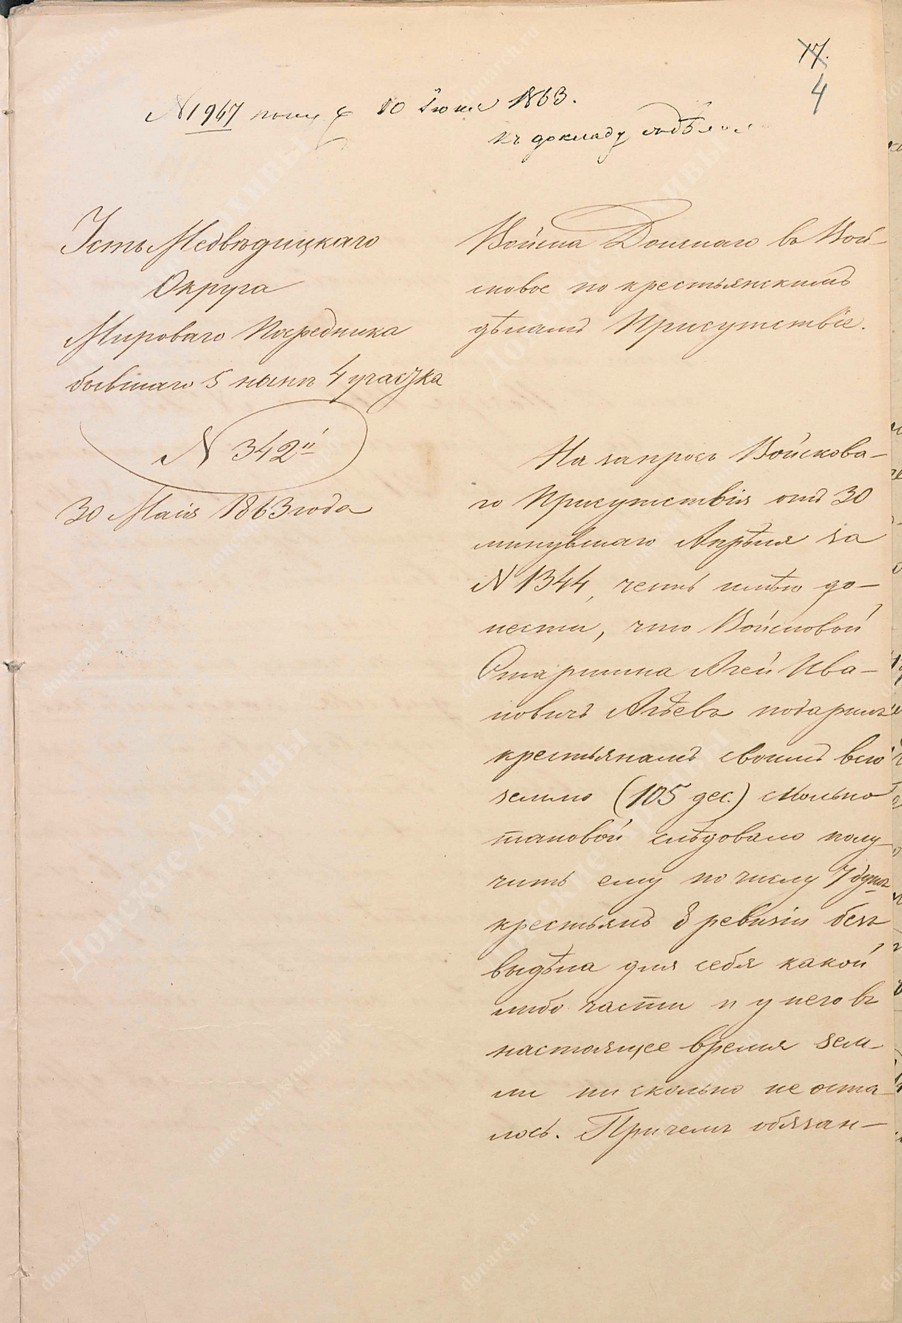 17.
4
№ 1967 10 Іюня 1863.
къ докладу
Усть Медвѣдицкаго
Округа
Мироваго Посредника
бывшаго 5 нынѣ 4 участка
№ 342й
30 Маія 1863 года
Войска Донскаго въ Вой-
сковое по крестьянскимъ
дѣламъ Присутствіе.
На запросъ Войскова-
го Присутствія отъ 30
минувшаго Апрѣля за
№ 1344, честь имѣю до-
нести, что Войсковой
Старшина Агей Ива-
новичъ Агѣевъ подарилъ
крестьянамъ своимъ всю
землю (105 дес.) сколько
таковой слѣдовало полу-
чить ему по числу 7 душъ
крестьянъ 8 ревизіи безъ
выдѣла для себя какой
либо части и у него въ
настоящее время зем-
ли нисколько не оста-
лось. Причемъ обязан-